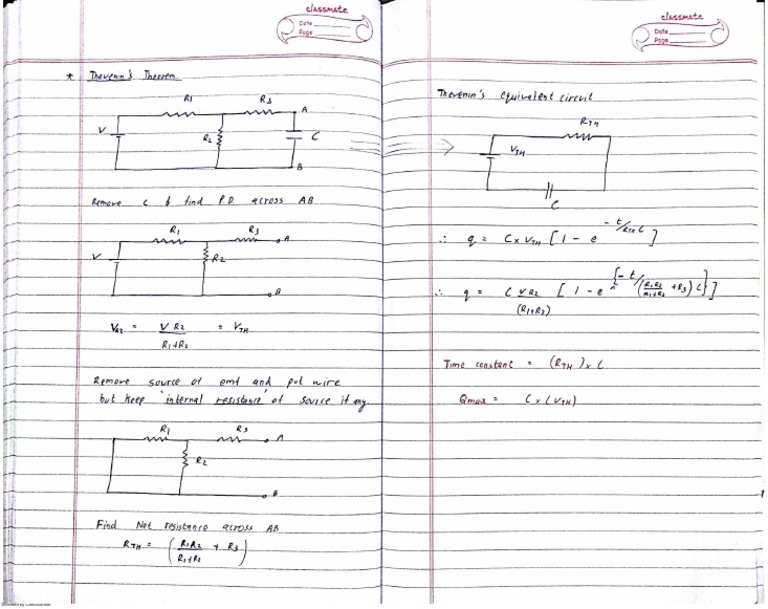 classmate
Date
Page
* Thevenin's Theorem
R1
R3
A
V
R2
C
B
Remove C & find P.D across AB
R1
R3
A
V
R2
B
VR2 = V R2 / R1+R2 = VTH
Remove source of emf and put wire
but keep 'internal resistance' of source if any.
R1
R3
A
R2
B
Find Net resistance across AB
RTH = ( R1R2 / R1+R2 + R3 )
classmate
Date
Page
Thevenin's equivalent circuit
RTH
VTH
C
∴ q = C x VTH [ 1 - e^-t/RTH C ]
∴ q = C V R2 / (R1+R2) [ 1 - e^{-t/(R1R2/R1+R2 + R3) C} ]
Time constant = (RTH) x C
Qmax = C x (VTH)